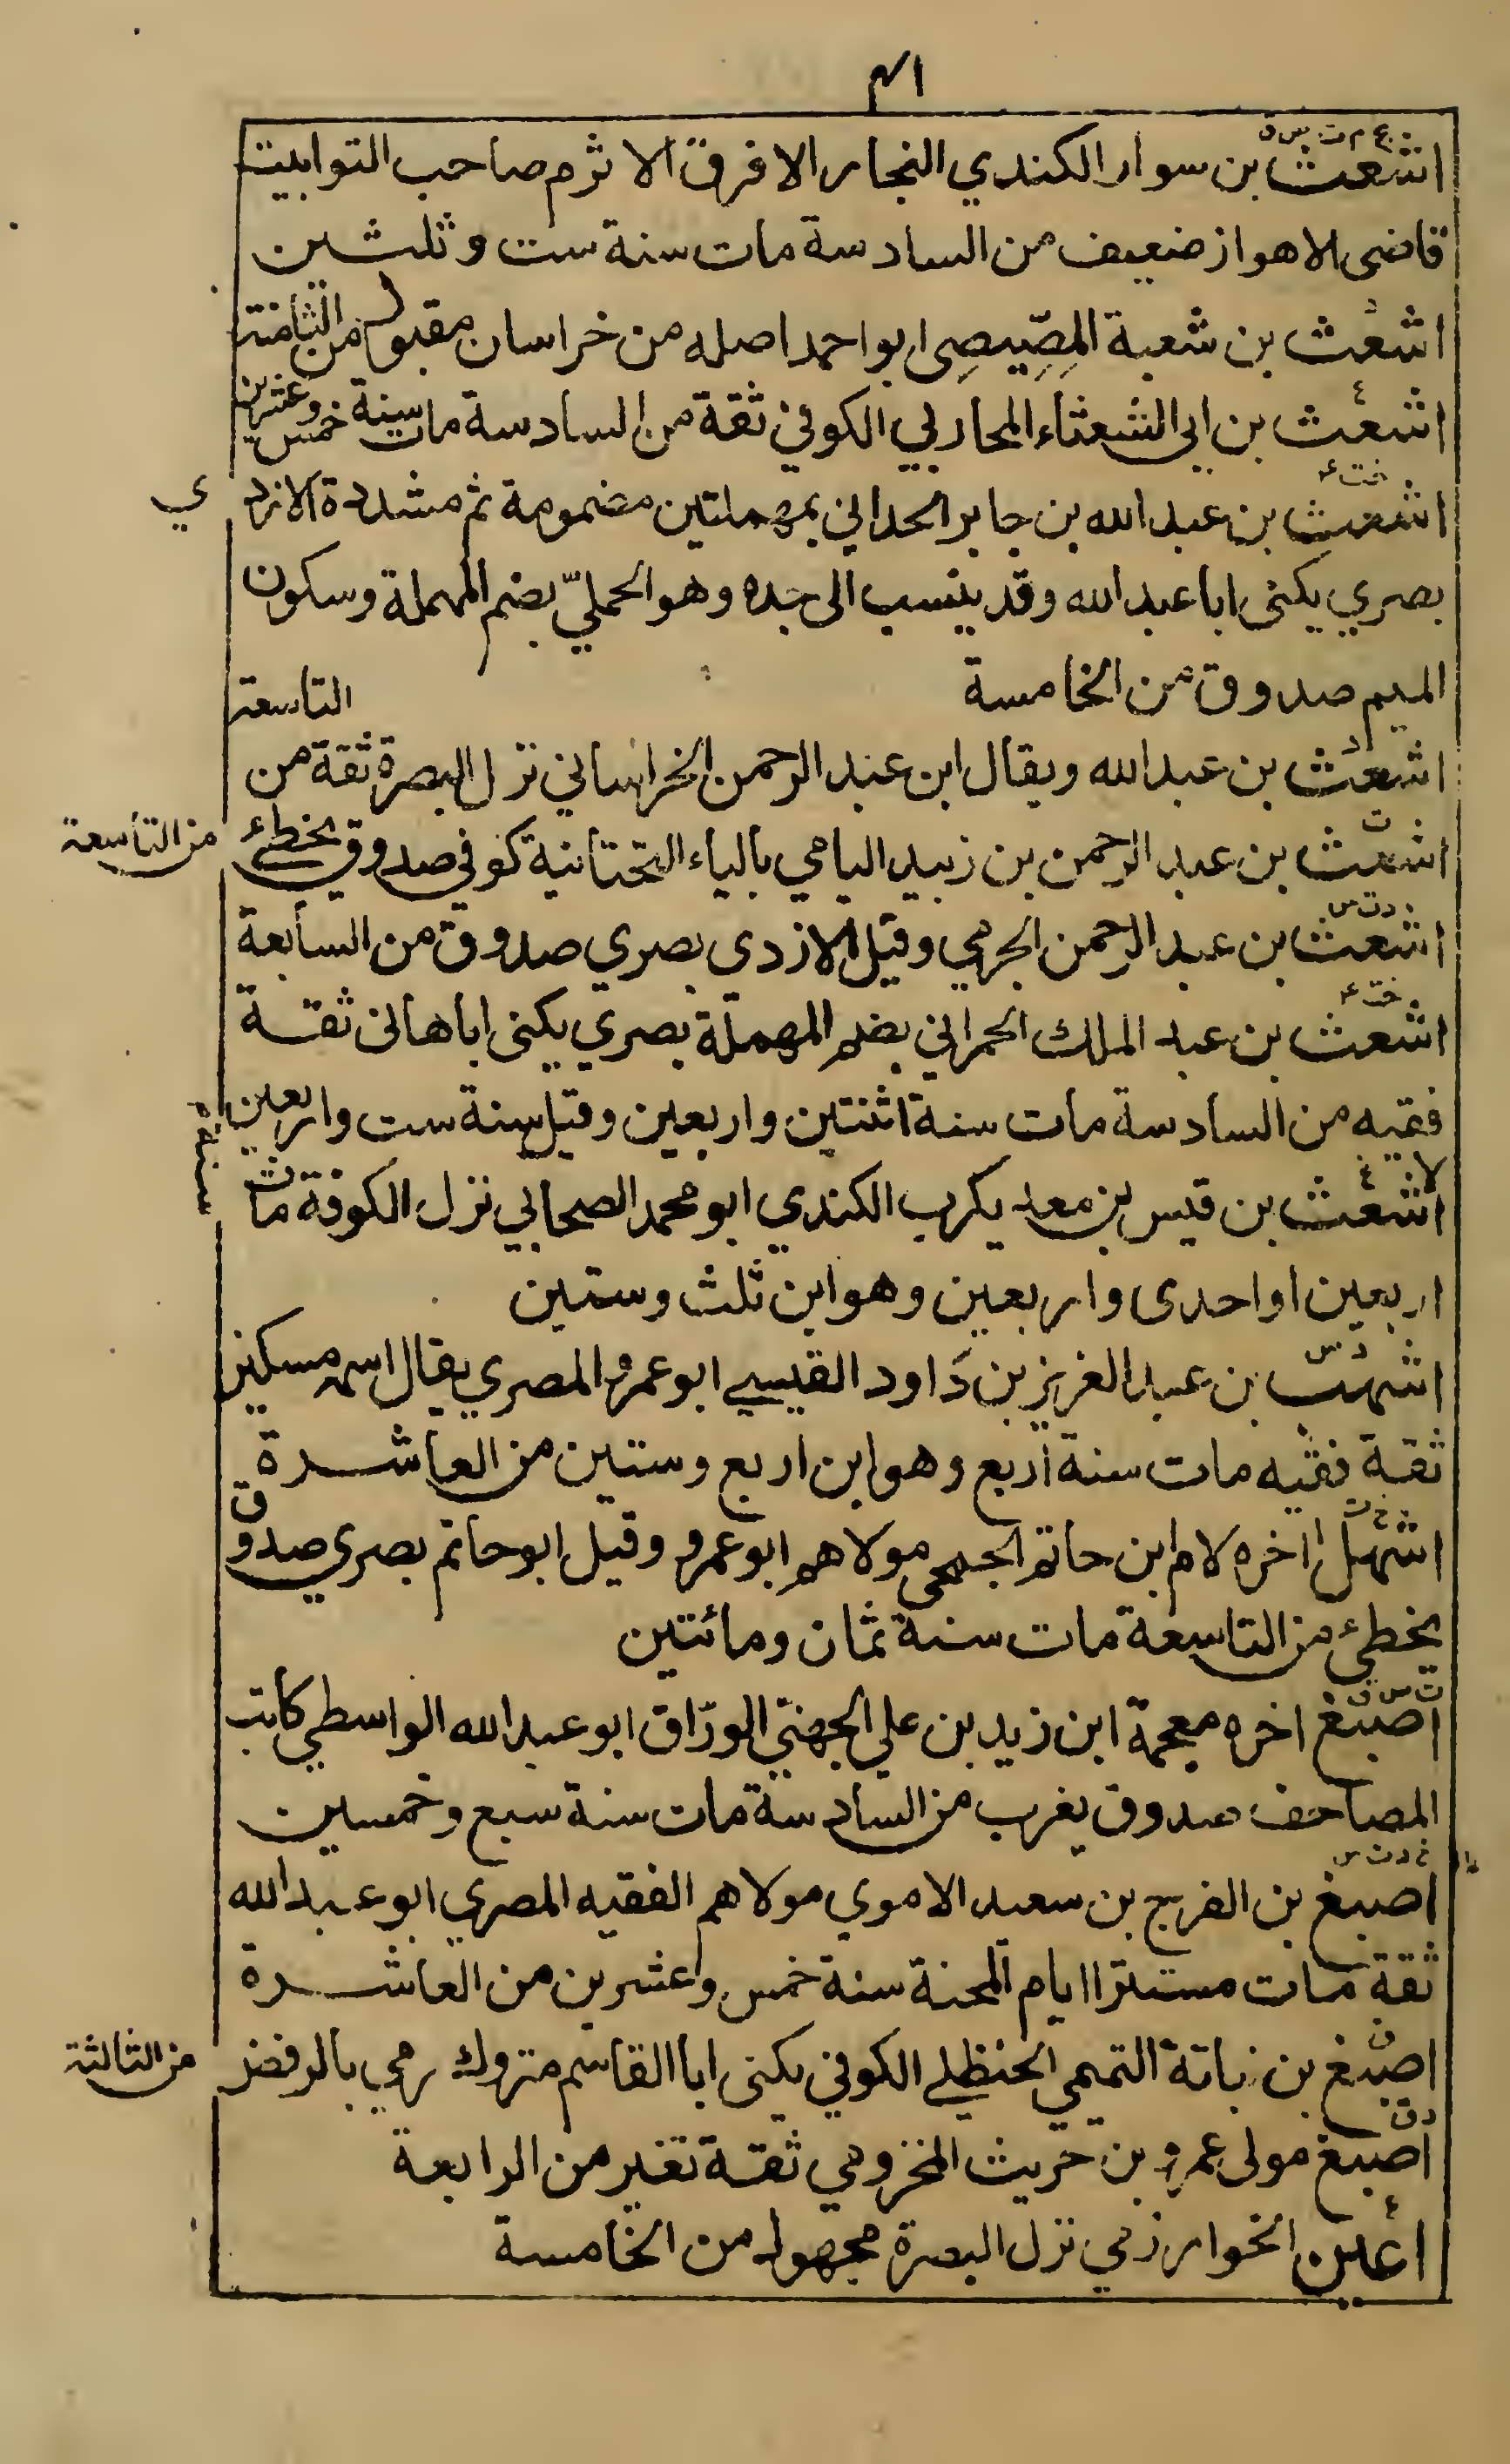 ٤١
بخ م ت س ق
اشعث بن سوار الكندي النجار الافرق الاثرم صاحب التوابيت
قاضى الاهواز ضعيف من السادسة مات سنة ست وثلثين
د
اشعث بن شعبة المِصِّيصِي ابو احمد اصله من خراسان مقبول من الثامنة
ع
اشعث بن ابي الشعثاء المحاربي الكوفي ثقة من السادسة مات سنة خمس وعشرين
خت ٤
اشعث بن عبد الله بن جابر الحداني بمهملتين مضمومة ثم مشددة الازدي
بصري يكنى ابا عبد الله وقد ينسب الى جده وهو الحمليّ بضم المهملة وسكون
الميم صدوق من الخامسة
التاسعة
د
اشعث بن عبد الله ويقال ابن عبد الرحمن الخراساني نزل البصرة ثقة من
ت
اشعث بن عبد الرحمن بن زبيد اليامي بالياء التحتانية كوفي صدوق يخطئ من التاسعة
د ت س
اشعث بن عبد الرحمن الجرمي وقيل الازدي بصري صدوق من السابعة
خت ٤
اشعث بن عبد الملك الحمراني بضم المهملة بصري يكنى ابا هانى ثقة
فقيه من السادسة مات سنة اثنتين واربعين وقيل سنة ست واربعين
ع
الاشعث بن قيس بن معد يكرب الكندي ابو محمد الصحابي نزل الكوفة مات سنة
اربعين او احدى واربعين وهو ابن ثلث وستين
د س
اشهب بن عبد العزيز بن داود القيسي ابو عمرو المصري يقال اسمه مسكين
ثقة فقيه مات سنة اربع وهو ابن اربع وستين من العاشرة
خ ت
اشهل اخره لام ابن حاتم الجمحي مولاهم ابو عمرو وقيل ابو حاتم بصري صدوق
يخطئ من التاسعة مات سنة ثمان ومائتين
ت س ق
اصبغ اخره معجمة ابن زيد بن علي الجهني الورّاق ابو عبد الله الواسطي كاتب
المصاحف صدوق يغرب من السادسة مات سنة سبع وخمسين
خ د ت س
اصبغ بن الفرج بن سعيد الاموي مولاهم الفقيه المصري ابو عبد الله
ثقة مات مستترا ايام المحنة سنة خمس وعشرين من العاشرة
ق
اصبغ بن نباتة التميمي الحنظلي الكوفي يكنى ابا القاسم متروك رمي بالرفض من الثالثة
د ق
اصبغ مولى عمرو بن حريث المخزومي ثقة تغير من الرابعة
اعين الخوارزمي نزل البصرة مجهول من الخامسة